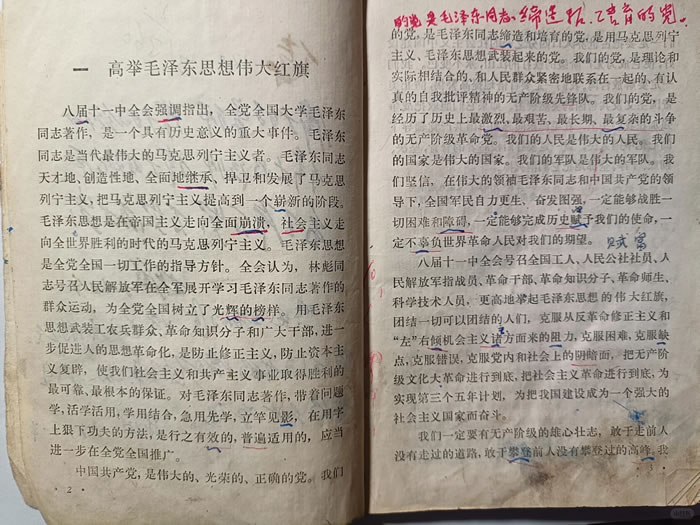 一 高举毛泽东思想伟大红旗
八届十一中全会强调指出，全党全国大学毛泽东
同志著作，是一个具有历史意义的重大事件。毛泽东
同志是当代最伟大的马克思列宁主义者。毛泽东同志
天才地、创造性地、全面地继承、捍卫和发展了马克思
列宁主义，把马克思列宁主义提高到一个崭新的阶段。
毛泽东思想是在帝国主义走向全面崩溃，社会主义走
向全世界胜利的时代的马克思列宁主义。毛泽东思想
是全党全国一切工作的指导方针。全会认为，林彪同
志号召人民解放军在全军展开学习毛泽东同志著作的
群众运动，为全党全国树立了光辉的榜样。用毛泽东
思想武装工农兵群众、革命知识分子和广大干部，进一
步促进人的思想革命化，是防止修正主义，防止资本主
义复辟，使我们社会主义和共产主义事业取得胜利的
最可靠、最根本的保证。对毛泽东同志著作，带着问题
学，活学活用，学用结合，急用先学，立竿见影，在用字
上狠下功夫的方法，是行之有效的，普遍适用的，应当
进一步在全党全国推广。
中国共产党，是伟大的、光荣的、正确的党。我们
· 2 ·
的党是毛泽东同志缔造和培育的党。
的党，是毛泽东同志缔造和培育的党，是用马克思列宁
主义、毛泽东思想武装起来的党。我们的党，是理论和
实际相结合的、和人民群众紧密地联系在一起的、有认
真的自我批评精神的无产阶级先锋队。我们的党，是
经历了历史上最激烈、最艰苦、最长期、最复杂的斗争
的无产阶级革命党。我们的人民是伟大的人民。我们
的国家是伟大的国家。我们的军队是伟大的军队。我
们坚信，在伟大的领袖毛泽东同志和中国共产党的领
导下，全国军民自力更生、奋发图强，一定能够战胜一
切困难和障碍，一定能够完成历史赋予我们的使命，一
定不辜负世界革命人民对我们的期望。
赋 富
八届十一中全会号召全国工人、人民公社社员、人
民解放军指战员、革命干部、革命知识分子、革命师生、
科学技术人员，更高地举起毛泽东思想的伟大红旗，
团结一切可以团结的人们，克服从反革命修正主义和
“左”右倾机会主义诸方面来的阻力，克服困难，克服缺
点，克服错误，克服党内和社会上的阴暗面，把无产阶
级文化大革命进行到底，把社会主义革命进行到底，为
实现第三个五年计划，为把我国建设成为一个强大的
社会主义国家而奋斗。
我们一定要有无产阶级的雄心壮志，敢于走前人
没有走过的道路，敢于攀登前人没有攀登过的高峰。我
· 3 ·